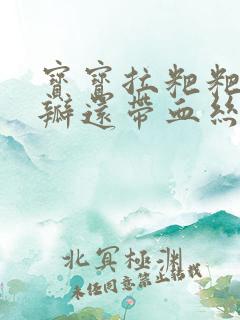 寶寶拉粑粑
瓣還帶血絲
北冥極淵
未經同意禁止轉載